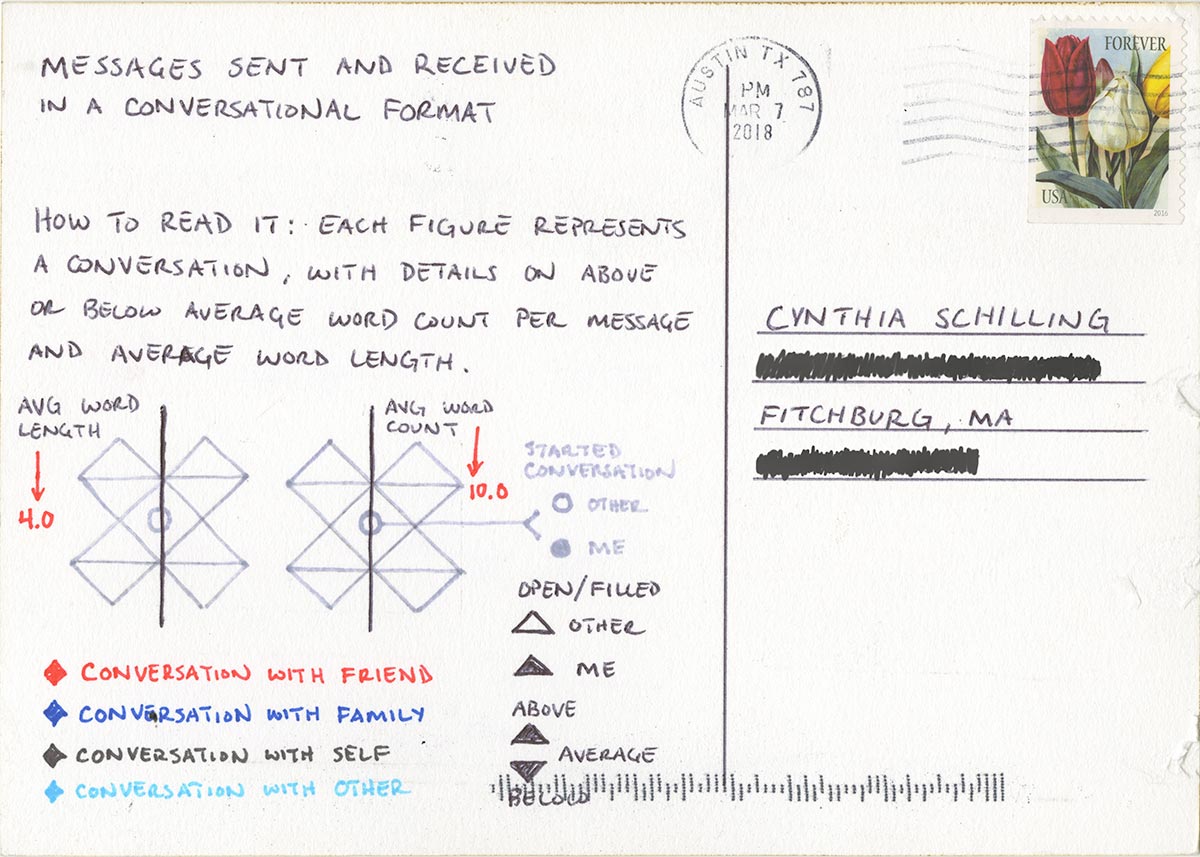 MESSAGES SENT AND RECEIVED
IN A CONVERSATIONAL FORMAT
AUSTIN TX 787
PM
MAR 7
2018
FOREVER
USA
2016
HOW TO READ IT: EACH FIGURE REPRESENTS
A CONVERSATION, WITH DETAILS ON ABOVE
OR BELOW AVERAGE WORD COUNT PER MESSAGE
AND AVERAGE WORD LENGTH.
AVG WORD
LENGTH
4.0
AVG WORD
COUNT
10.0
STARTED
CONVERSATION
OTHER
ME
OPEN/FILLED
OTHER
ME
ABOVE
AVERAGE
BELOW
CONVERSATION WITH FRIEND
CONVERSATION WITH FAMILY
CONVERSATION WITH SELF
CONVERSATION WITH OTHER
CYNTHIA SCHILLING
FITCHBURG, MA